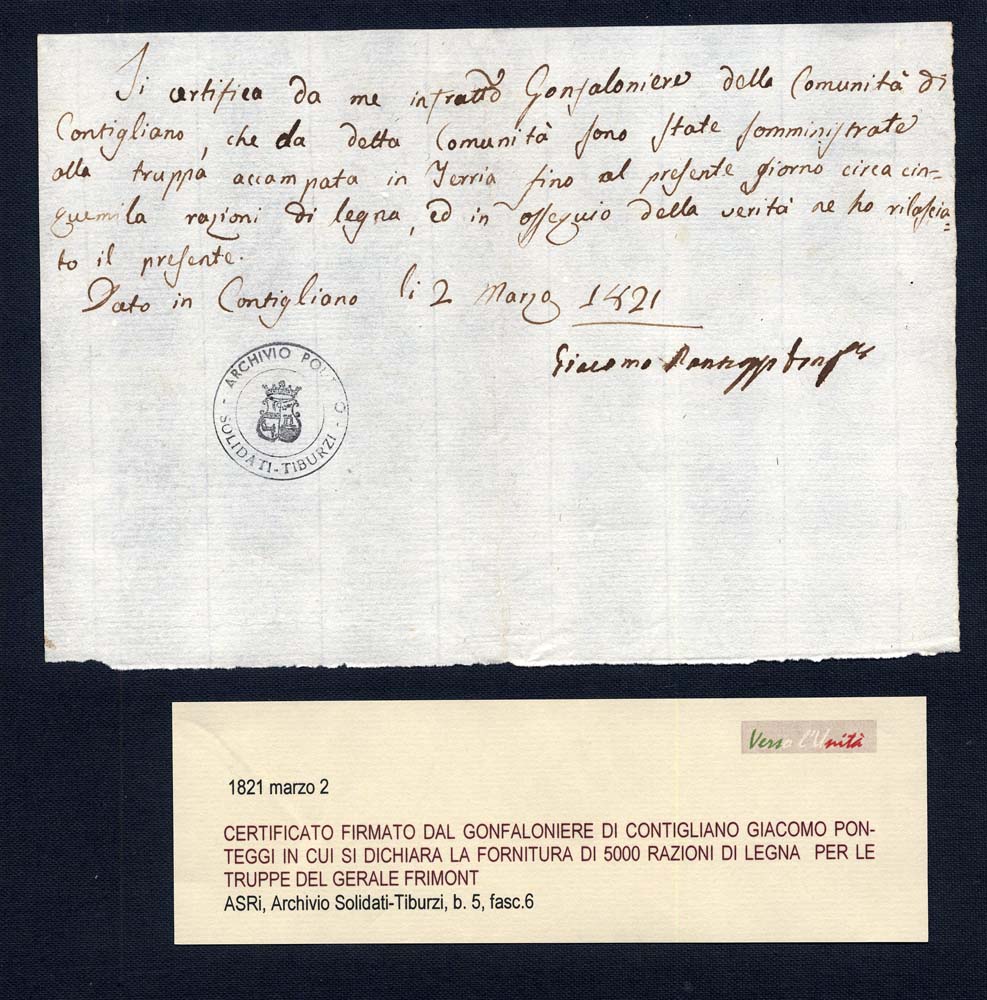 Si certifica da me infratto Gonfaloniere della Comunità di
Contigliano, che da detta Comunità sono state somministrate
alla truppa accampata in Terria fino al presente giorno circa cin-
quemila razioni di legna, ed in ossequio della verità ne ho rilascia-
to il presente.
Dato in Contigliano li 2 Marzo 1821
Giacomo
ARCHIVIO
SOLIDATI-TIBURZI
Verso l'Unità
1821 marzo 2
CERTIFICATO FIRMATO DAL GONFALONIERE DI CONTIGLIANO GIACOMO PON-
TEGGI IN CUI SI DICHIARA LA FORNITURA DI 5000 RAZIONI DI LEGNA PER LE
TRUPPE DEL GERALE FRIMONT
ASRi, Archivio Solidati-Tiburzi, b. 5, fasc.6